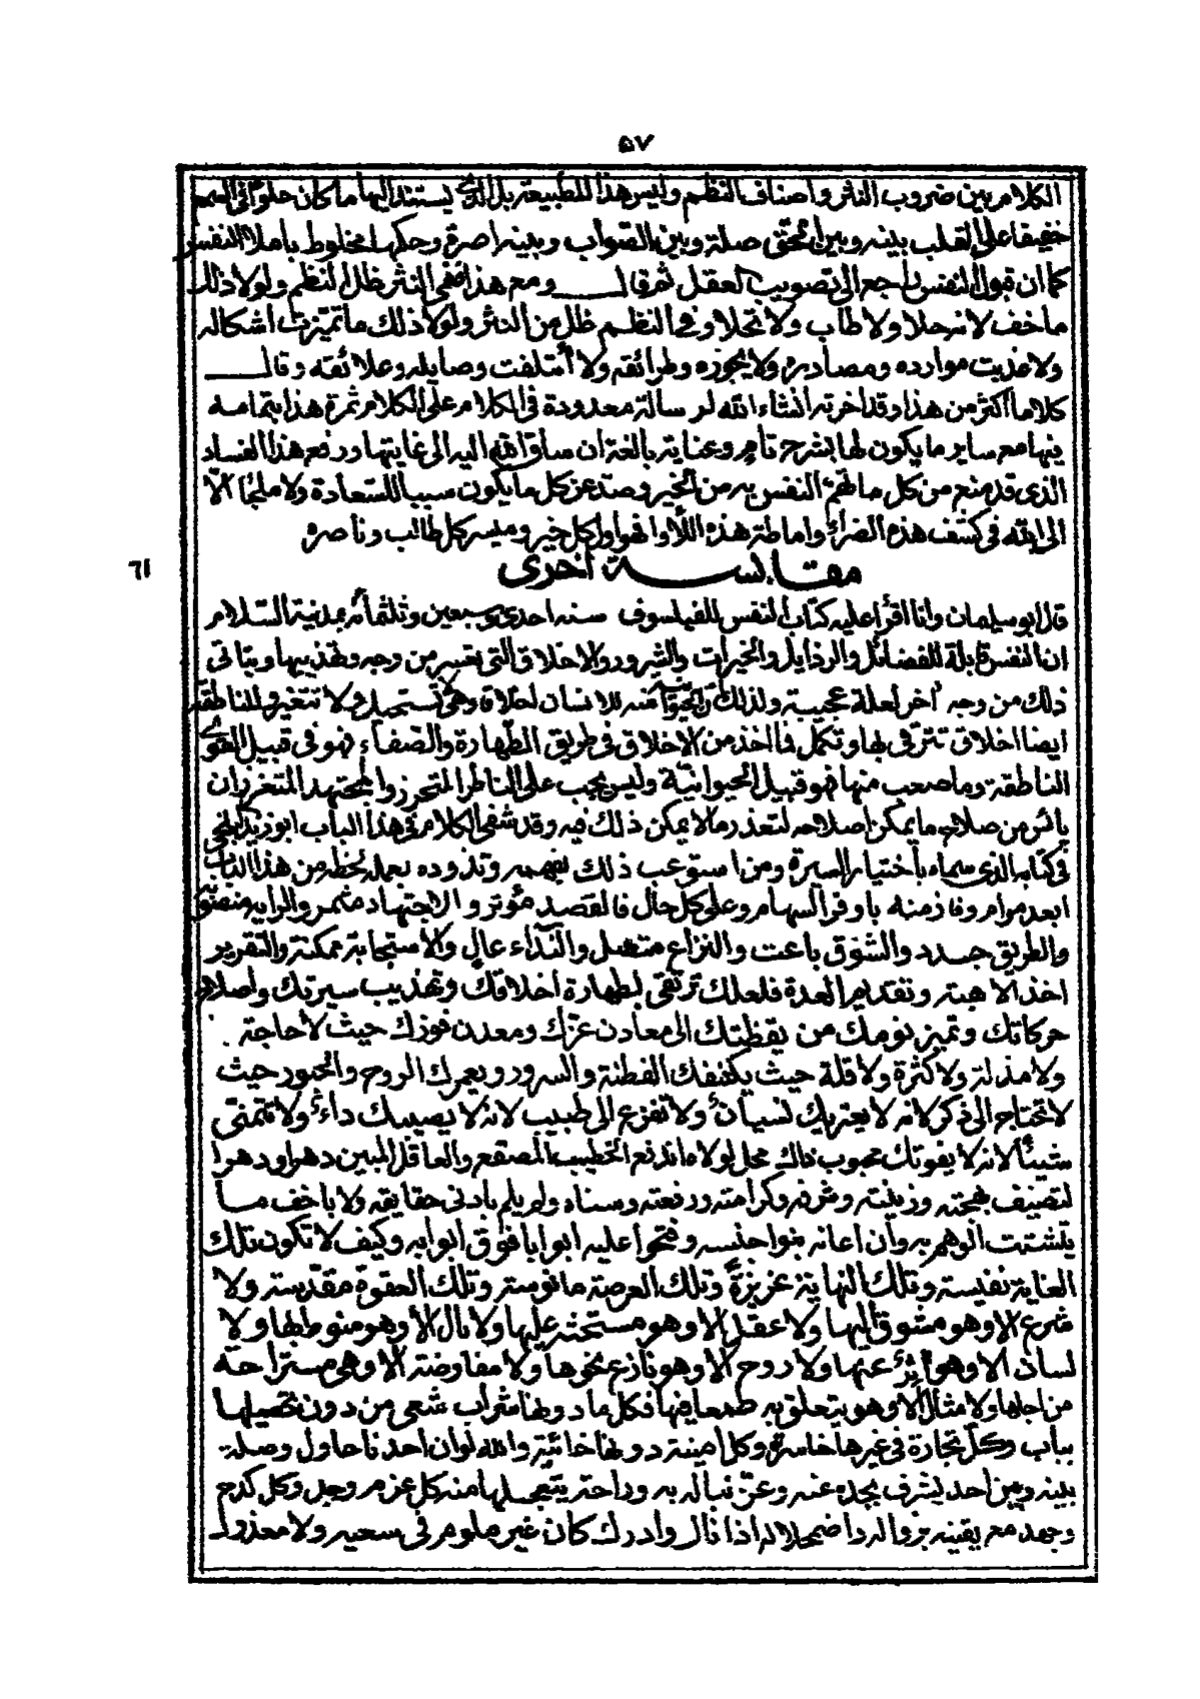 ٥٧
الكلام بين ضروب النثر واصناف النظم وليس هذا للطبيعة بل الذى يستند اليها ما كان حلوا فى السمع
خفيفا على القلب بينه وبين الحق صلة وبين الصواب وبينه اصرة وحكمها مخلوط باملاء النفس
كما ان قبول النفس راجع الى تصويب العقل ثم قال ومع هذا ففى النثر ظل النظم ولولا ذلك
ما خف لا نه حلا ولا طاب ولا تحلا وفى النظم ظل من النثر ولولا ذلك ما تميزت اشكاله
ولا عذبت موارده ومصادره ولا بحوره وطرائقه ولا أئتلفت وصايله وعلائقه وقال
كلاما اكثر من هذا وقد اخرته انشاء الله لرسالة معدودة فى الكلام على الكلام ثمرة هذا بتمامه
فيها مع ساير ما يكون لها بشرح تام وعناية بالغة ان ساق الله اليه الى غايتها ورفع هذا الفساد
الذى قد منع من كل ما تهم النفس به من الخير وصد عن كل ما يكون سببا للسعادة ولا ملجأ الا
الى الله فى كشف هذه الضراء واماطة هذه اللأوا فهو اول كل خير وميسر كل طالب وناصره
مقابسة اخرى
٦١
قال ابو سليمان وانا اقرأ عليه كتاب النفس للفيلسوف سنه احدى وسبعين وثلثمائه بمدينة السلام
ان النفس قابلة للفضائل والرذايل والخيرات والشرور والاخلاق التى تعسر من وجه وتهذيبها ويتاتى
ذلك من وجه اخر لعلة عجيبة ولذلك للانسان اخلاق وهى تستحيل ولا تتغير وللناطقة
ايضا اخلاق تترقى بها وتكمل فما اخذ من الاخلاق فى طريق الطهارة والصفاء فهو فى قبيل القوى
الناطقة وما صعب منها فهو قبيل الحيوانية وليس يجب على الناظر المتحرز والمجتهد المتغرر ان
يائس من صلاح ما يمكن اصلاحه لتعذر ما لا يمكن ذلك فيه وقد شفى الكلام فى هذا الباب ابو زيد البلخى
فى كتابه الذى سماه باختيار السيرة ومن استوعب ذلك بفهمه وتذوده بعمله يحظى من هذا الباب
ابعد مرام وفاز منه باوفر السهام وعلى كل حال فالقصد مؤثر والاجتهاد مثمر والرايه منصوبة
والطريق جدد والشوق باعث والنزاع متصل والنداء عال والاستجابة ممكنة والتقرير
اخذ الاهبة وتقديم العدة فلعلك ترتقى بطهارة اخلاقك وتهذيب سيرتك واصلاح
حركاتك وتميز نومك من يقظتك الى معادن عزك ومعدن فوزك حيث لا حاجة
ولا مذلة ولا كثرة ولا قلة حيث يكنفك الفطنة والسرور ويعمرك الروح والحبور حيث
لا تحتاج الى ذكر لانه لا يعتريك نسيان ولا تفزع الى طبيب لانه لا يصيبك داء ولا تتمنى
شيئا لانه لا يفوتك محبوب ذاك محل لولا ما اندفع الخطيب المصقع والعاقل المبين دهرا ودهرا
لتصنيف بهجته وزينته وشرفه وكرامته ورفعته وسناه ولم يلم بادنى حقايقه ولا باخف ما
يتشتت الوهم به وان اعانه بنو جنسه وفتحوا عليه ابوابا فوق ابوابه وكيف لا تكون تلك
الغاية نفيسة وتلك النهاية عزيزة وتلك العرصة مانوسة وتلك العقوة مقدسة ولا
شرع الا وهو مشوق اليها ولا عقل الا وهو مستحث عليها ولا بال الا وهو منوط بها ولا
لسان الا وهو اثر عنها ولا روح الا وهو نازع نحوها ولا مفاوضة الا وهى مستراحة
من اجلها ولا مثال الا وهو يتعلق به طمعا فيها فكل ما دونها شراب شعى من دون تحصيلها
بباب وكل تجارة فى غيرها خاسرة وكل امنية دونها خائبة والله لو ان احدنا حاول وصلة
بينه وبين احد يشرف بجده عنه وعز نباله به وراحة يتعجلها منه كل عزم وجد وكل كدح
وجهد مع يقينه بزواله واضمحلاله اذا نال وادرك كان غير ملوم فى سعيه ولا معذول